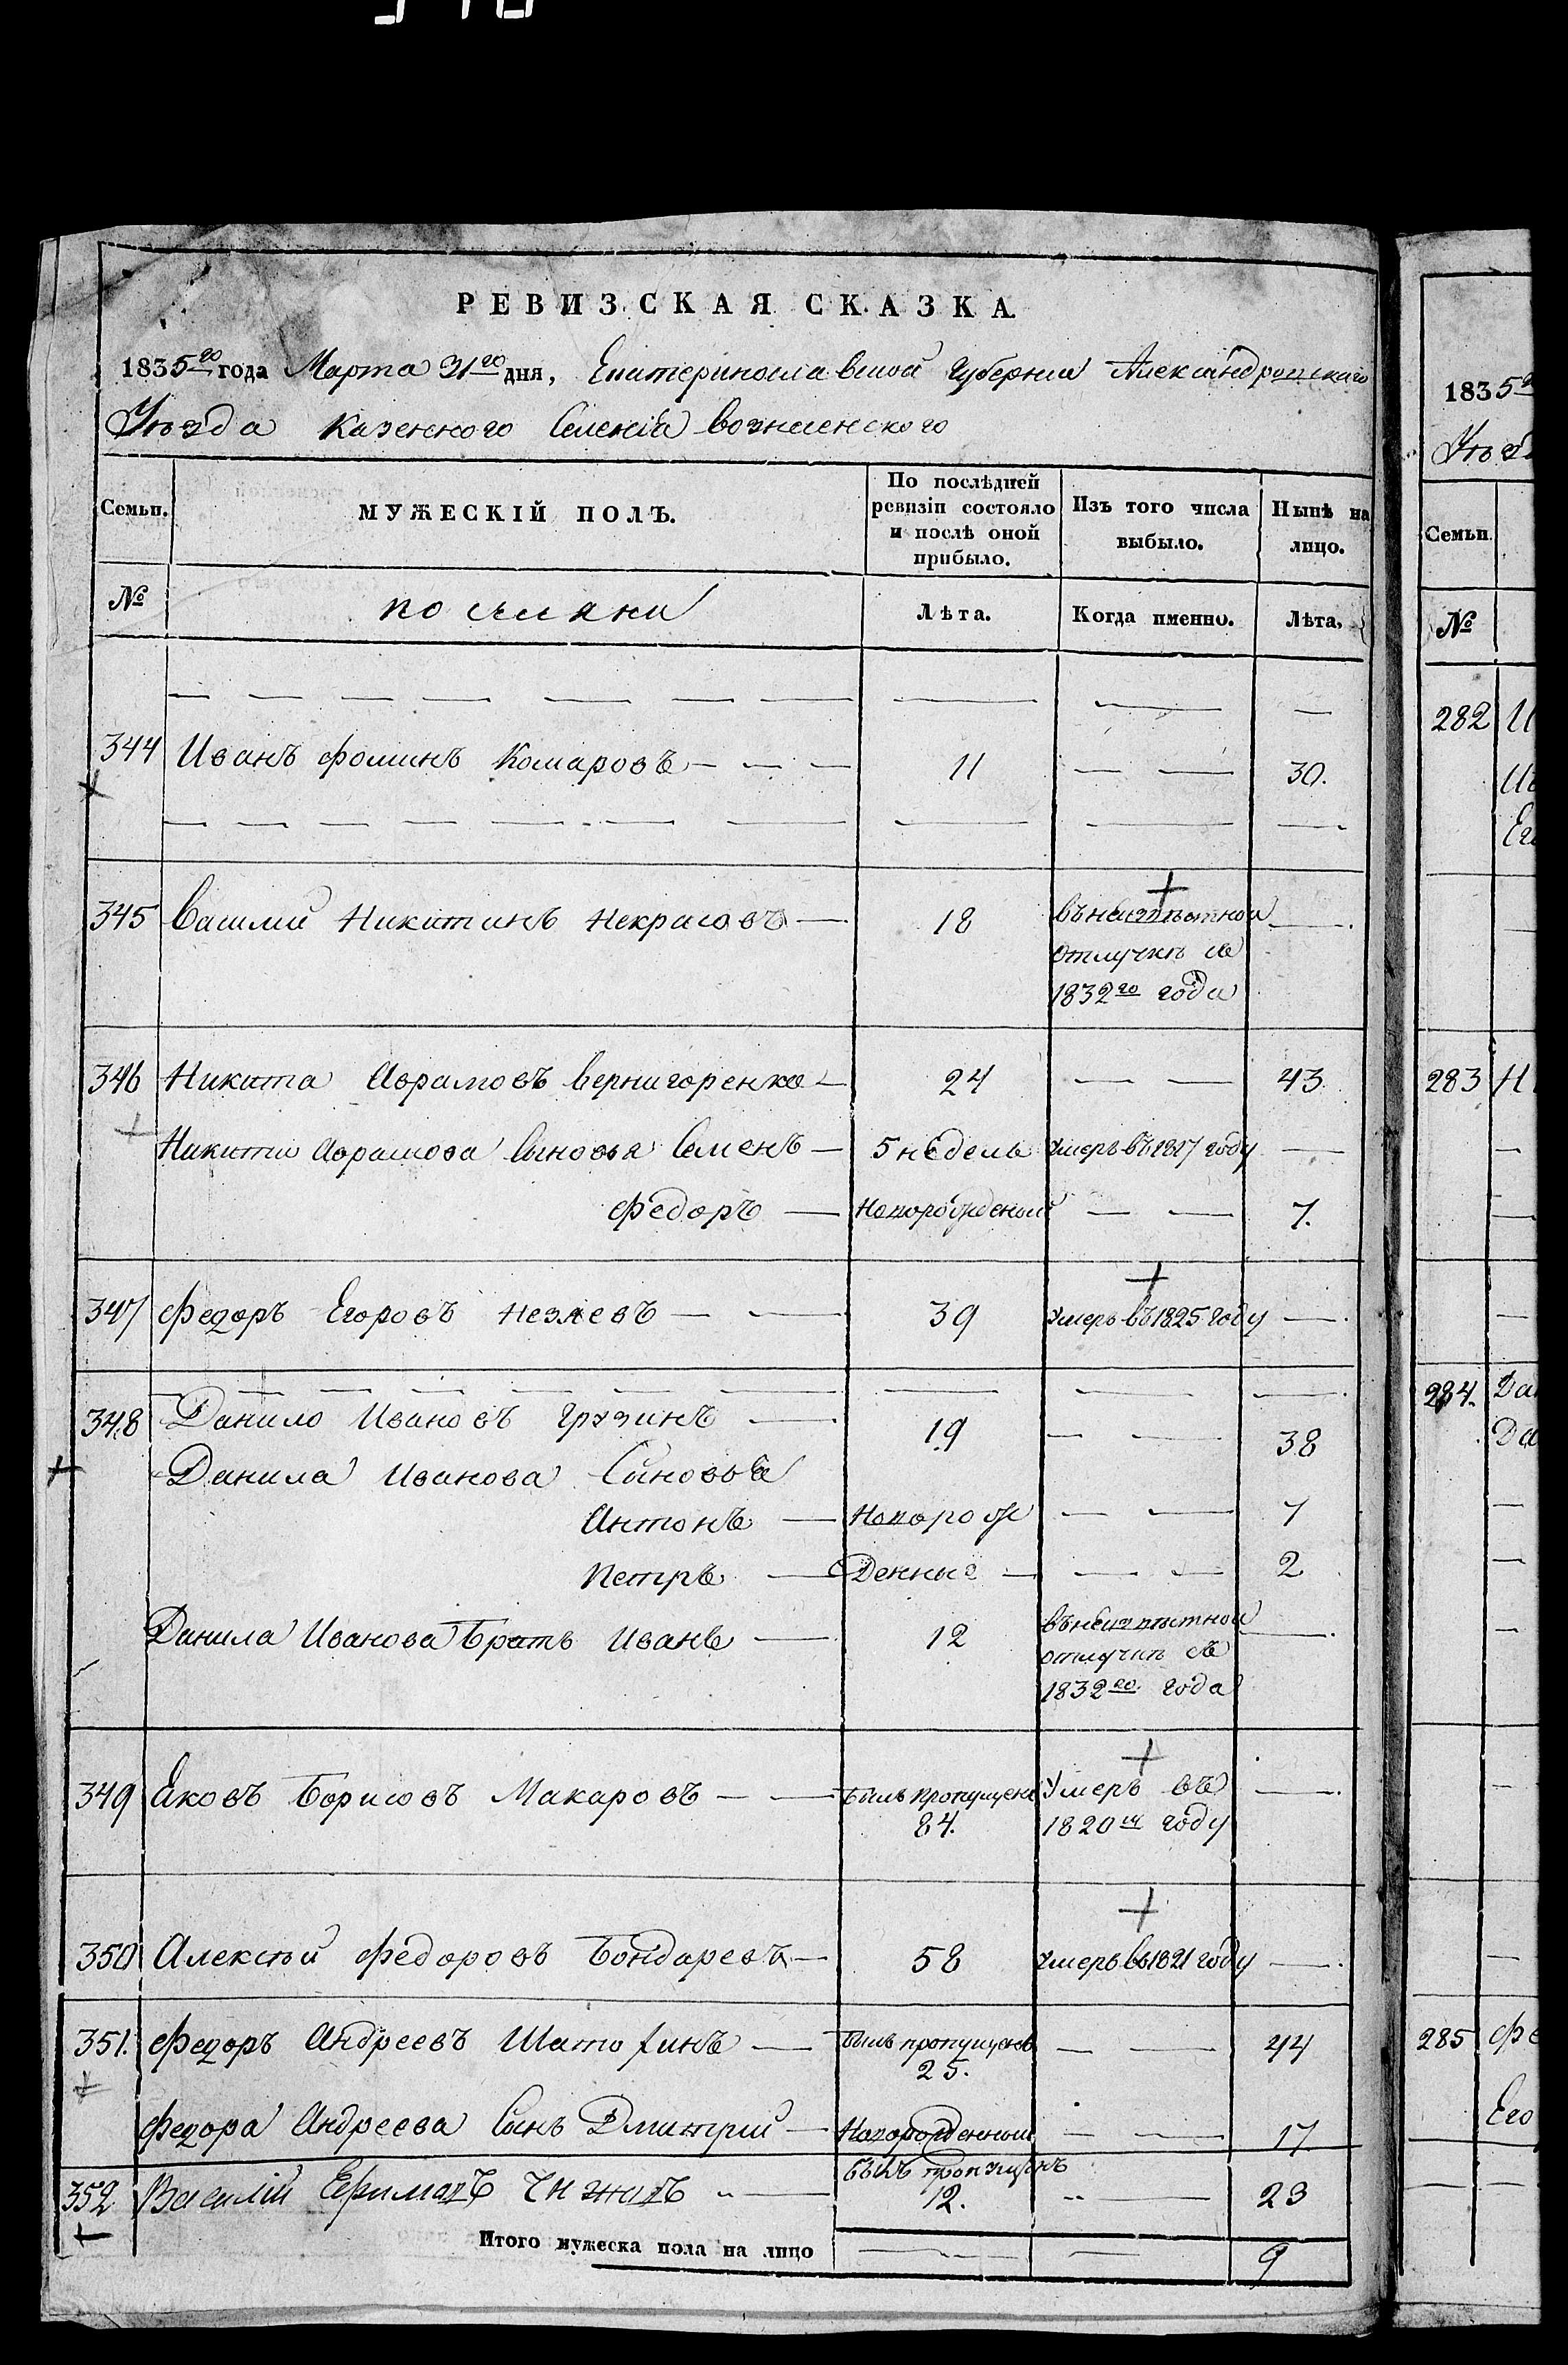 РЕВИЗСКАЯ СКАЗКА
1835го года Марта 31го дня, Екатеринославской Губернии Александровскаго
Уѣзда Казенного Селенія Вознесенского
Семьи.
МУЖЕСКІЙ ПОЛЪ.
По послѣдней ревизіи состояло и послѣ оной прибыло.
Изъ того числа выбыло.
Нынѣ на лицо.
№
поселяни
Лѣта.
Когда именно.
Лѣта,
344 Иванъ Фоминъ Комаровъ 11 30.
345 Василий Никитинъ Некрасовъ 18 въ неизвѣстной
отлучкѣ съ
1832го года
346 Никита Аврамовъ Вернигоренко 24 43
Никиты Аврамова Сыновья Семенъ 5 недель умеръ въ 1817 году
Федоръ Новорожденый 7.
347 Федоръ Егоровъ 39 умеръ въ 1825 году
348 Данило Ивановъ Грузинъ 19 38
Данила Иванова Сыновья
Антонъ Новорож 7
Петръ Денные 2
Данила Иванова Братъ Иванъ 12 въ неизвѣстной
отлучкѣ съ
1832го года
349 Яковъ Борисовъ Макаровъ былъ пропущенъ Умеръ въ
84. 1820м году
350 Алексѣй Федоровъ Бондаревъ 58 умеръ въ 1821 году
351. Федоръ Андреевъ былъ пропущенъ 44
25.
Федора Андреева Сынъ Дмитрий Новорожденный 17
352 Василій Ефимовъ Чижовъ былъ пропущенъ 23
12.
Итого мужеска пола на лицо 9
1835
Уѣз
Семьи
№
282 И
Ив
Его
283 Н
284. Дан
Да
285 Фе
Его